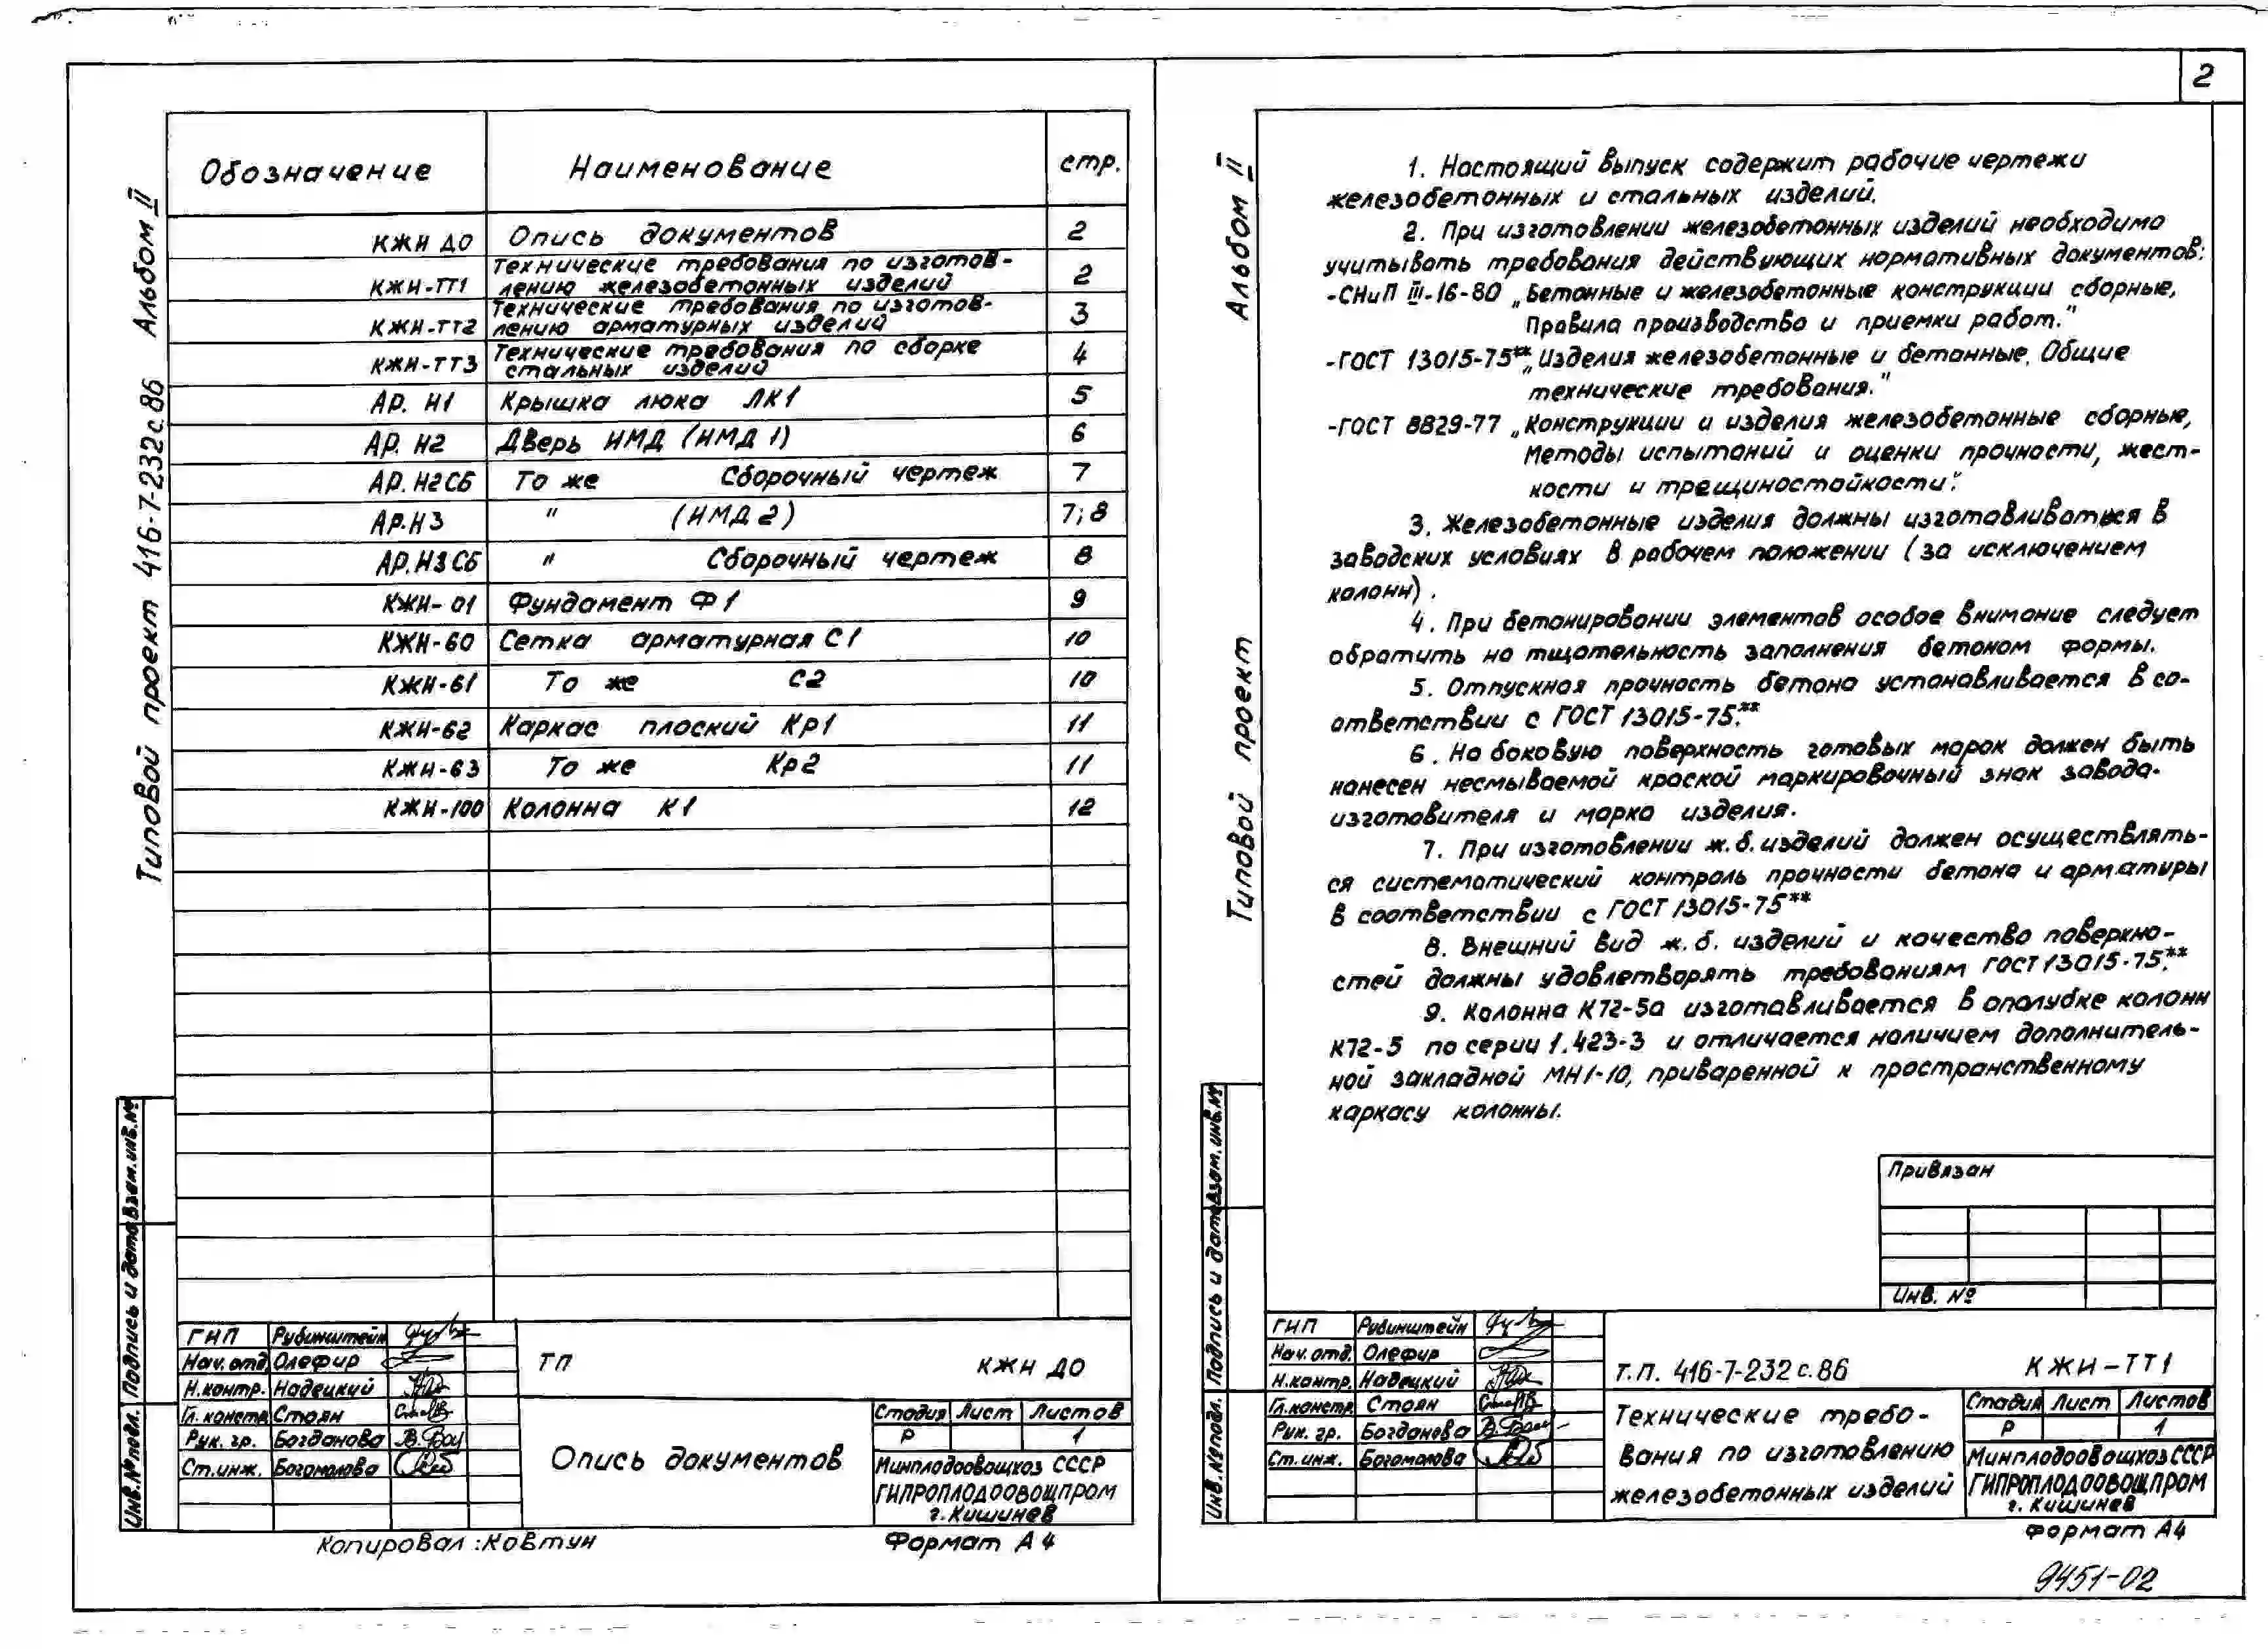 2
Типовой проект 416-7-232 с.86 Альбом II
Обозначение Наименование стр.
КЖИ ДО Опись документов 2
КЖИ-ТТ1 Технические требования по изготов-
лению железобетонных изделий 2
КЖИ-ТТ2 Технические требования по изготов-
лению арматурных изделий 3
КЖИ-ТТ3 Технические требования по сборке
стальных изделий 4
АР. И1 Крышка люка ЛК1 5
АР. И2 Дверь ИМД (ИМД 1) 6
АР. И2СБ То же Сборочный чертеж 7
АР.И3 " (ИМД 2) 7; 8
АР.И3СБ " Сборочный чертеж 8
КЖИ- 01 Фундамент Ф1 9
КЖИ-60 Сетка арматурная С1 10
КЖИ-61 То же С2 10
КЖИ-62 Каркас плоский Кр1 11
КЖИ-63 То же Кр2 11
КЖИ-100 Колонна К1 12
Инв.№подл. Подпись и дата Взам.инв.№
ГИП Рубинштейн
Нач.отд. Олефир
Н.контр. Надецкий
Гл.констр. Стоян
Рук. гр. Богданова
Ст.инж. Богомолова
ТП КЖИ ДО
Опись документов
Стадия Лист Листов
Р 1
Минплодоовощхоз СССР
ГИПРОПЛОДООВОЩПРОМ
г.Кишинев
Копировал :Ковтун Формат А4
Типовой проект Альбом II
1. Настоящий выпуск содержит рабочие чертежи
железобетонных и стальных изделий.
2. При изготовлении железобетонных изделий необходимо
учитывать требования действующих нормативных документов:
-СНиП III-16-80 „Бетонные и железобетонные конструкции сборные,
Правила производства и приемки работ."
-ГОСТ 13015-75** „Изделия железобетонные и бетонные. Общие
технические требования."
-ГОСТ 8829-77 „Конструкции и изделия железобетонные сборные,
Методы испытаний и оценки прочности, жест-
кости и трещиностойкости".
3. Железобетонные изделия должны изготавливаться в
заводских условиях в рабочем положении (за исключением
колонн).
4. При бетонировании элементов особое внимание следует
обратить на тщательность заполнения бетоном формы.
5. Отпускная прочность бетона устанавливается в со-
ответствии с ГОСТ 13015-75.**
6. На боковую поверхность готовых марок должен быть
нанесен несмываемой краской маркировочный знак завода-
изготовителя и марка изделия.
7. При изготовлении ж.б. изделий должен осуществлять-
ся систематический контроль прочности бетона и арматуры
в соответствии с ГОСТ 13015-75**
8. Внешний вид ж.б. изделий и качество поверхно-
стей должны удовлетворять требованиям ГОСТ 13015-75.**
9. Колонна К72-5а изготавливается в опалубке колонн
К72-5 по серии 1.423-3 и отличается наличием дополнитель-
ной закладной МН1-10, приваренной к пространственному
каркасу колонны.
Привязан
Инв. №
Инв.№подл. Подпись и дата Взам.инв.№
ГИП Рубинштейн
Нач.отд. Олефир
Н.контр. Надецкий
Гл.констр. Стоян
Рук. гр. Богданова
Ст.инж. Богомолова
Т.П. 416-7-232 с.86 КЖИ-ТТ1
Технические требо-
вания по изготовлению
железобетонных изделий
Стадия Лист Листов
Р 1
Минплодоовощхоз СССР
ГИПРОПЛОДООВОЩПРОМ
г. Кишинев
Формат А4
9451-02